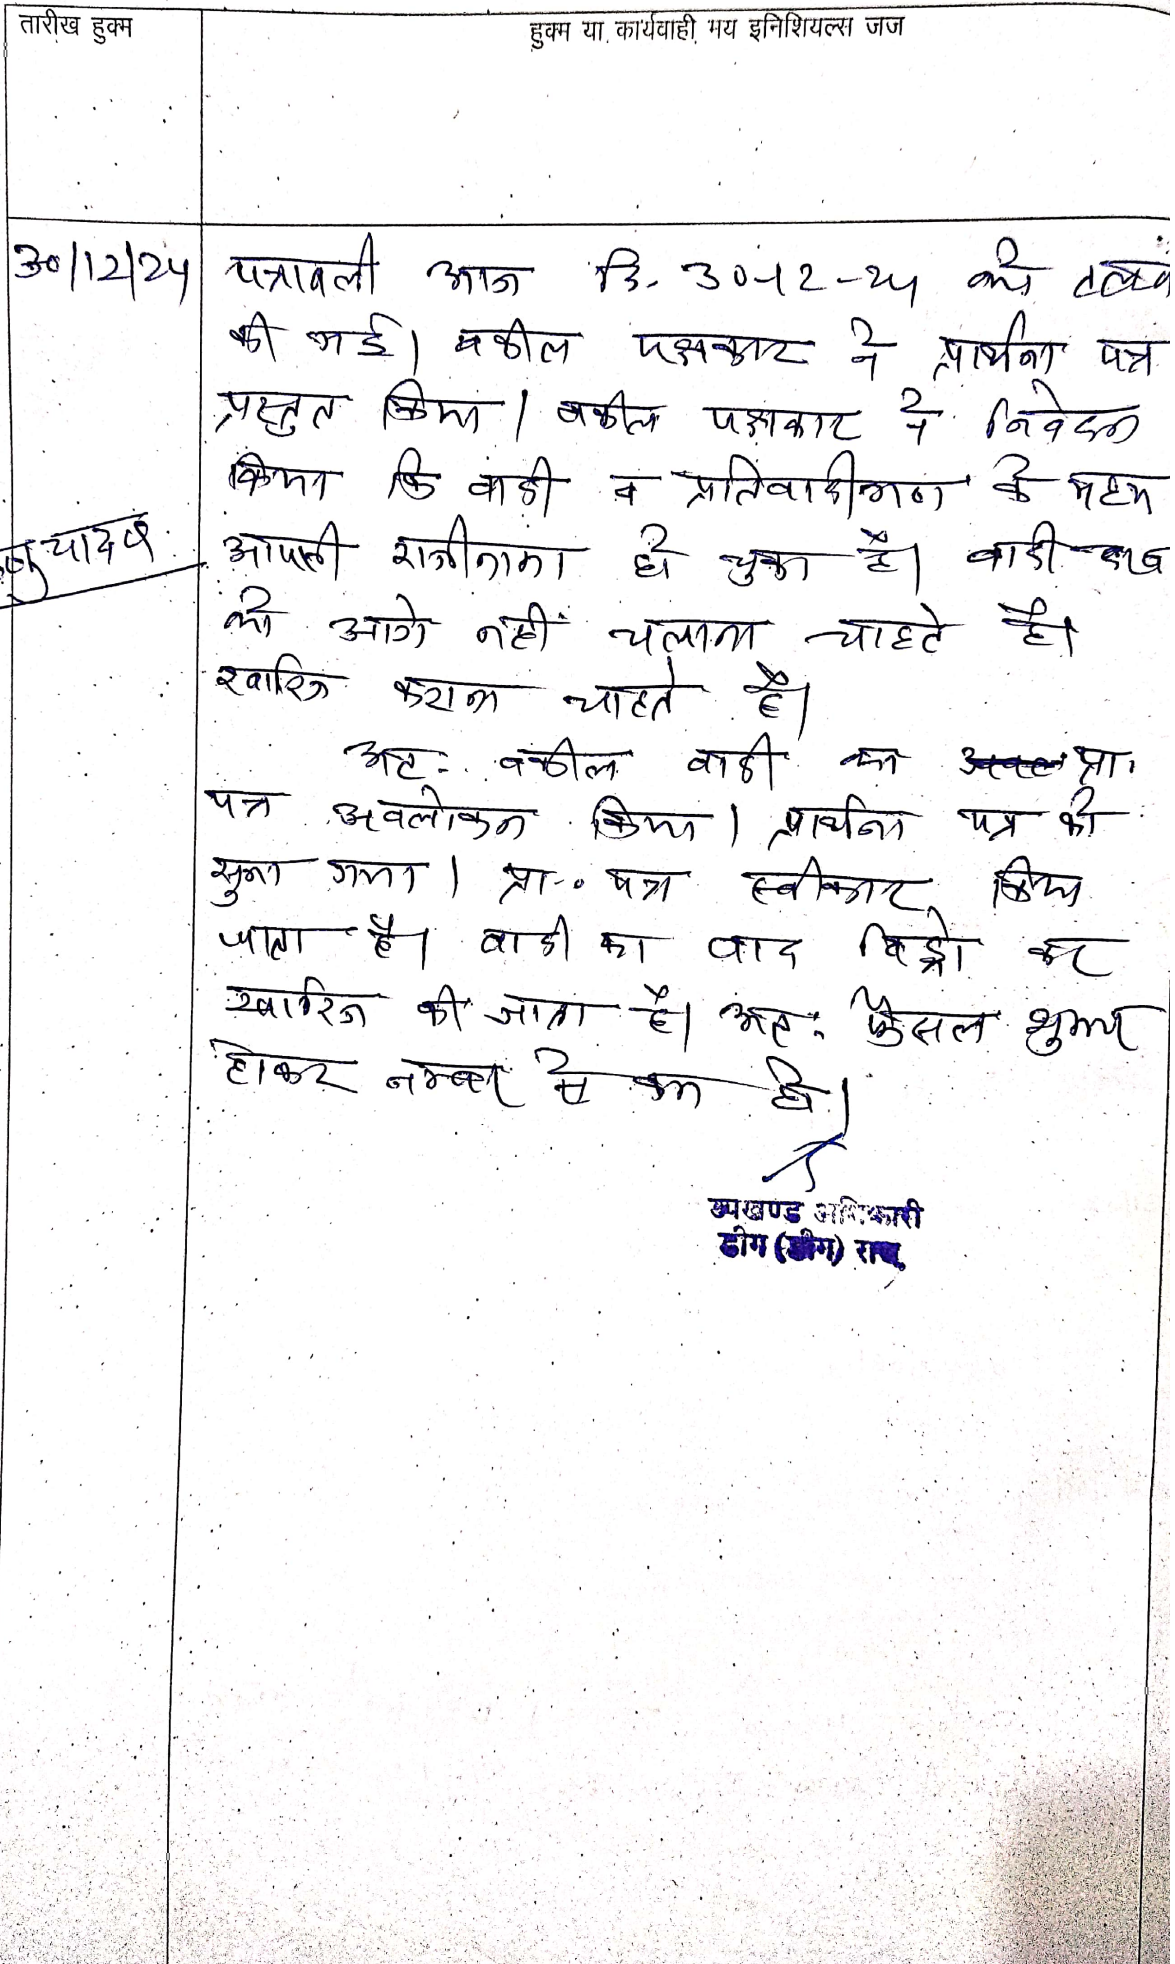 तारीख हुक्म
हुक्म या कार्यवाही मय इनिशियल्स जज
30/12/24
पत्रावली आज दि. 30-12-24 को तलब
की गई। वकील पक्षकार ने प्रार्थना पत्र
प्रस्तुत किया। वकील पक्षकार ने निवेदन
किया कि वादी व प्रतिवादीगण के मध्य
यादव
आपसी राजीनामा हो चुका है। वादी
को आगे नहीं चलाना चाहते है।
खारिज कराना चाहते है।
अतः वकील वादी का प्रा.
पत्र अवलोकन किया। प्रार्थना पत्र को
सुना गया। प्रा. पत्र स्वीकार किया
जाता है। वादी का वाद विड्रो कर
खारिज की जाता है। अतः फैसल शुमार
होकर नम्बर से कम हो।
उपखण्ड अधिकारी
डीग (डीग) राज.